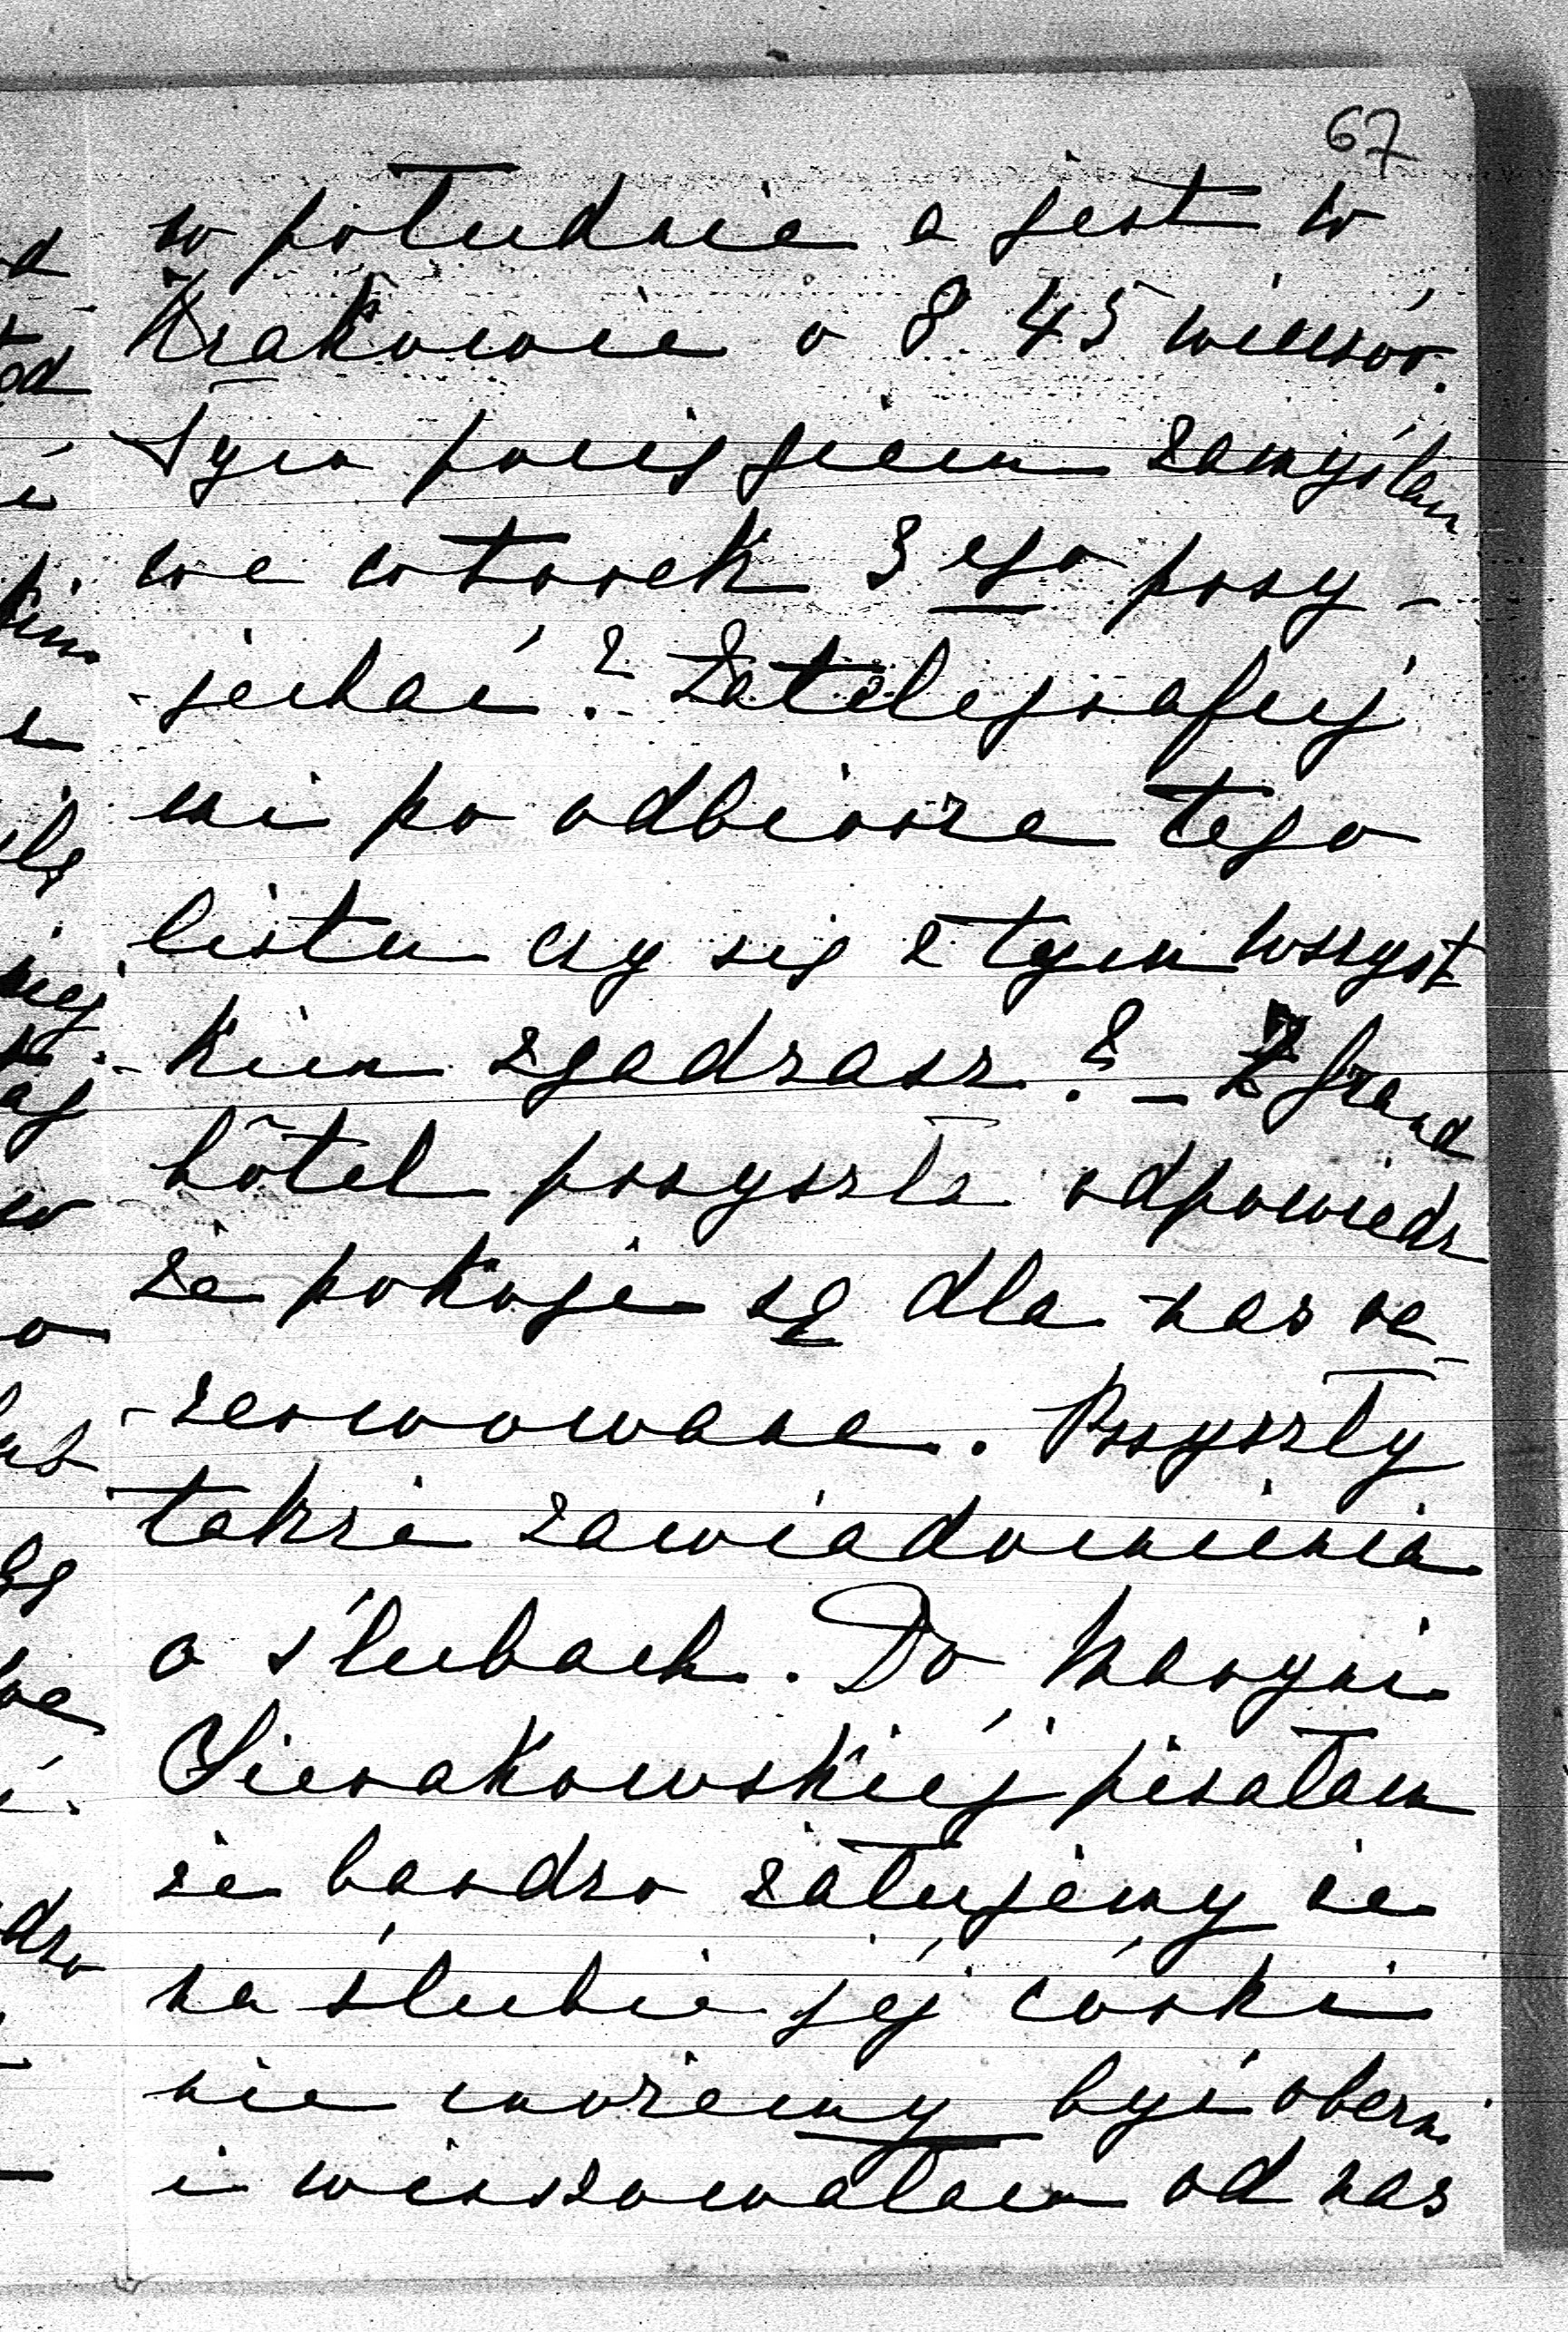 67
w południe a jest w
Krakowie o 8 45 wieczór.
Tym pociągiem zamyślam
we wtorek 3ego przy-
-jechać? Zatelegrafuj
mi po odbiorze tego
listu czy się z tym wszyst
-kiem zgadzasz? – Z Grand
hôtel przyszła odpowiedź
że pokoje są dla nas re-
-zerwowane. Przyszły
także zawiadomienia
o ślubach. Do Maryni
Sierakowskiej pisałam
że bardzo żałujemy że
na ślubie jej córki
nie możemy być obecni
i winszowałam od nas